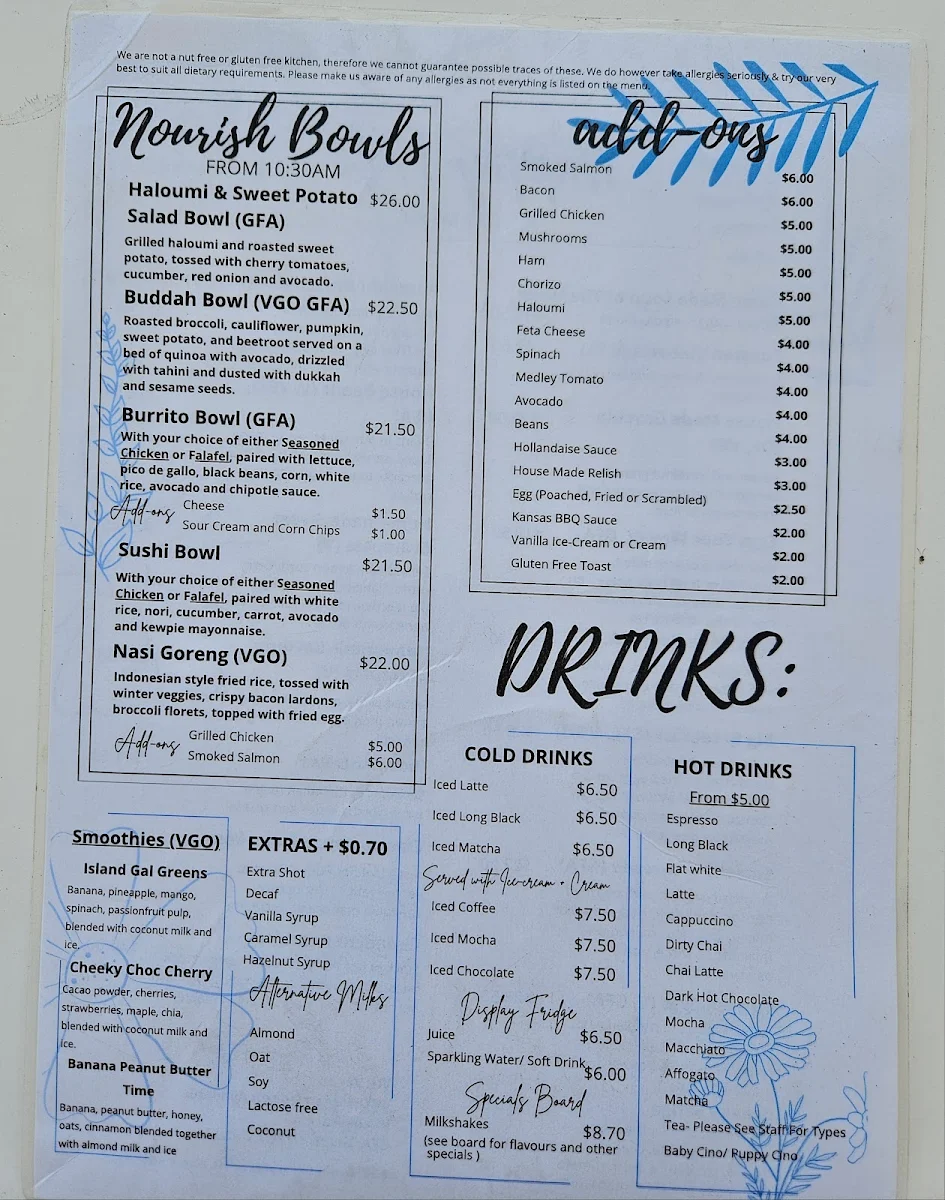 We are not a nut free or gluten free kitchen, therefore we cannot guarantee possible traces of these. We do however take allergies seriously & try our very
best to suit all dietary requirements. Please make us aware of any allergies as not everything is listed on the menu.
Nourish Bowls
FROM 10:30AM
Haloumi & Sweet Potato $26.00
Salad Bowl (GFA)
Grilled haloumi and roasted sweet
potato, tossed with cherry tomatoes,
cucumber, red onion and avocado.
Buddah Bowl (VGO GFA) $22.50
Roasted broccoli, cauliflower, pumpkin,
sweet potato, and beetroot served on a
bed of quinoa with avocado, drizzled
with tahini and dusted with dukkah
and sesame seeds.
Burrito Bowl (GFA) $21.50
With your choice of either Seasoned
Chicken or Falafel, paired with lettuce,
pico de gallo, black beans, corn, white
rice, avocado and chipotle sauce.
Add-ons Cheese $1.50
Sour Cream and Corn Chips $1.00
Sushi Bowl $21.50
With your choice of either Seasoned
Chicken or Falafel, paired with white
rice, nori, cucumber, carrot, avocado
and kewpie mayonnaise.
Nasi Goreng (VGO) $22.00
Indonesian style fried rice, tossed with
winter veggies, crispy bacon lardons,
broccoli florets, topped with fried egg.
Add-ons Grilled Chicken $5.00
Smoked Salmon $6.00
add-ons
Smoked Salmon $6.00
Bacon $6.00
Grilled Chicken $5.00
Mushrooms $5.00
Ham $5.00
Chorizo $5.00
Haloumi $5.00
Feta Cheese $4.00
Spinach $4.00
Medley Tomato $4.00
Avocado $4.00
Beans $4.00
Hollandaise Sauce $3.00
House Made Relish $3.00
Egg (Poached, Fried or Scrambled) $2.50
Kansas BBQ Sauce $2.00
Vanilla Ice-Cream or Cream $2.00
Gluten Free Toast $2.00
DRINKS:
Smoothies (VGO)
Island Gal Greens
Banana, pineapple, mango,
spinach, passionfruit pulp,
blended with coconut milk and
ice.
Cheeky Choc Cherry
Cacao powder, cherries,
strawberries, maple, chia,
blended with coconut milk and
ice.
Banana Peanut Butter
Time
Banana, peanut butter, honey,
oats, cinnamon blended together
with almond milk and ice
EXTRAS + $0.70
Extra Shot
Decaf
Vanilla Syrup
Caramel Syrup
Hazelnut Syrup
Alternative Milks
Almond
Oat
Soy
Lactose free
Coconut
COLD DRINKS
Iced Latte $6.50
Iced Long Black $6.50
Iced Matcha $6.50
Served with Ice-cream + Cream
Iced Coffee $7.50
Iced Mocha $7.50
Iced Chocolate $7.50
Display Fridge
Juice $6.50
Sparkling Water/ Soft Drink $6.00
Specials Board
Milkshakes $8.70
(see board for flavours and other
specials )
HOT DRINKS
From $5.00
Espresso
Long Black
Flat white
Latte
Cappuccino
Dirty Chai
Chai Latte
Dark Hot Chocolate
Mocha
Macchiato
Affogato
Matcha
Tea- Please See Staff For Types
Baby Cino/ Puppy Cino